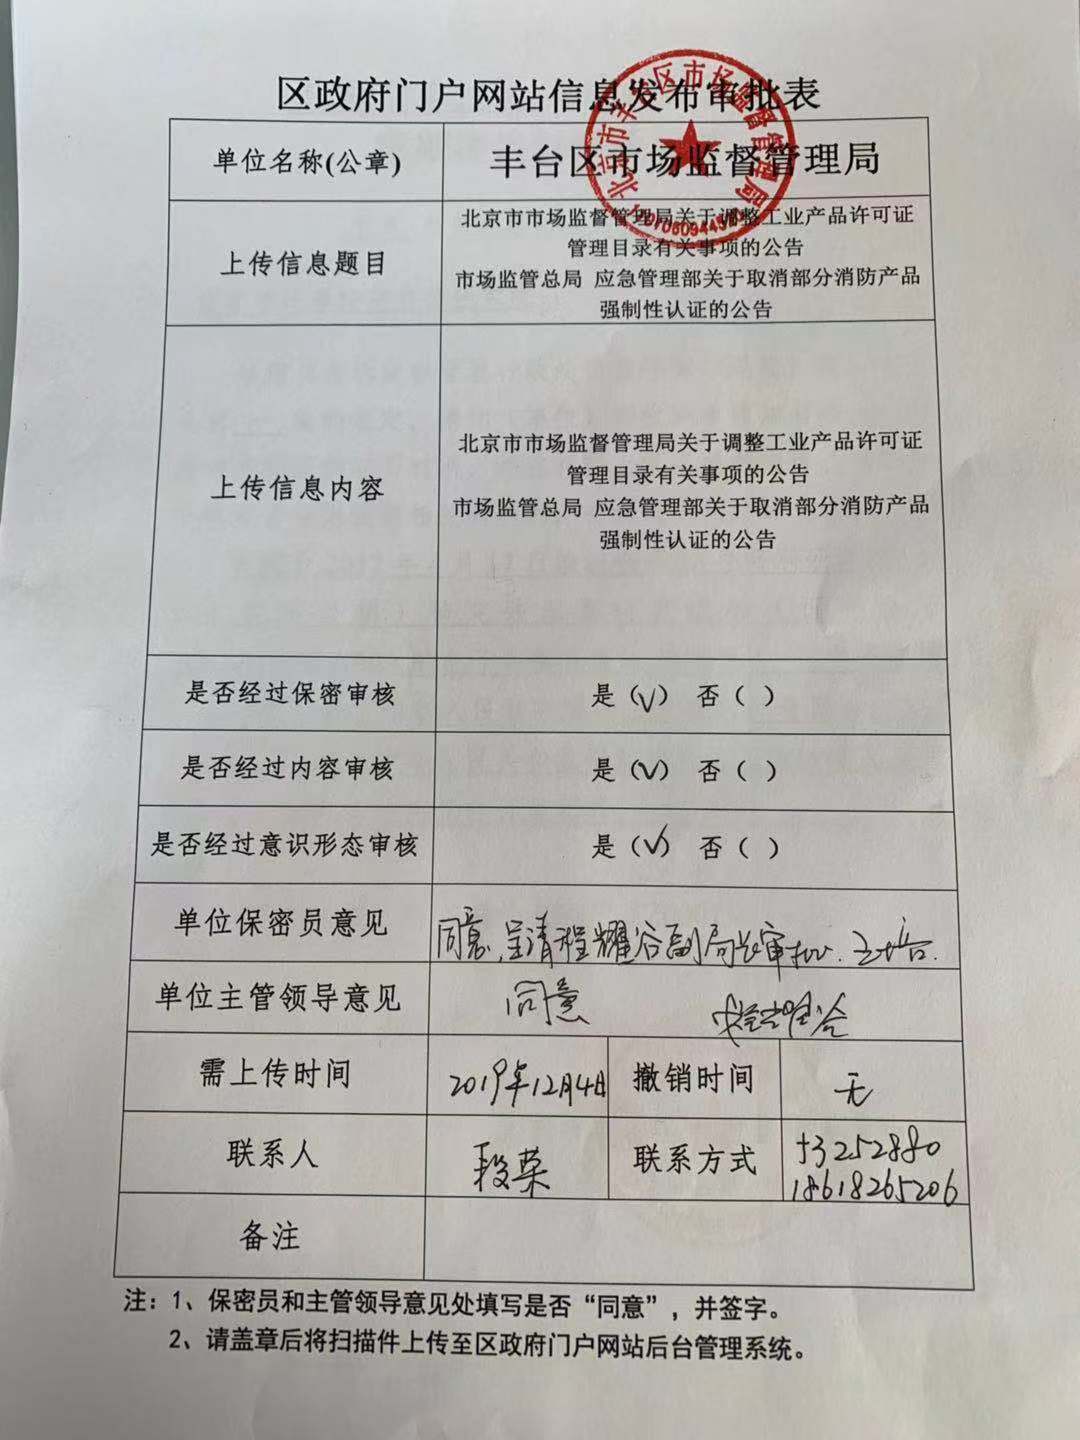 区政府门户网站信息发布审批表
北京市丰台区市场监督管理局
单位名称(公章) 丰台区市场监督管理局
上传信息题目
北京市市场监督管理局关于调整工业产品许可证
管理目录有关事项的公告
市场监管总局 应急管理部关于取消部分消防产品
强制性认证的公告
上传信息内容
北京市市场监督管理局关于调整工业产品许可证
管理目录有关事项的公告
市场监管总局 应急管理部关于取消部分消防产品
强制性认证的公告
是否经过保密审核 是(√) 否( )
是否经过内容审核 是(√) 否( )
是否经过意识形态审核 是(√) 否( )
单位保密员意见 同意,呈请程耀谷副局长审批.
单位主管领导意见 同意
需上传时间 2019年12月4日 撤销时间 无
联系人 段荣 联系方式 83252880
18618265206
备注
注:1、保密员和主管领导意见处填写是否“同意”,并签字。
2、请盖章后将扫描件上传至区政府门户网站后台管理系统。